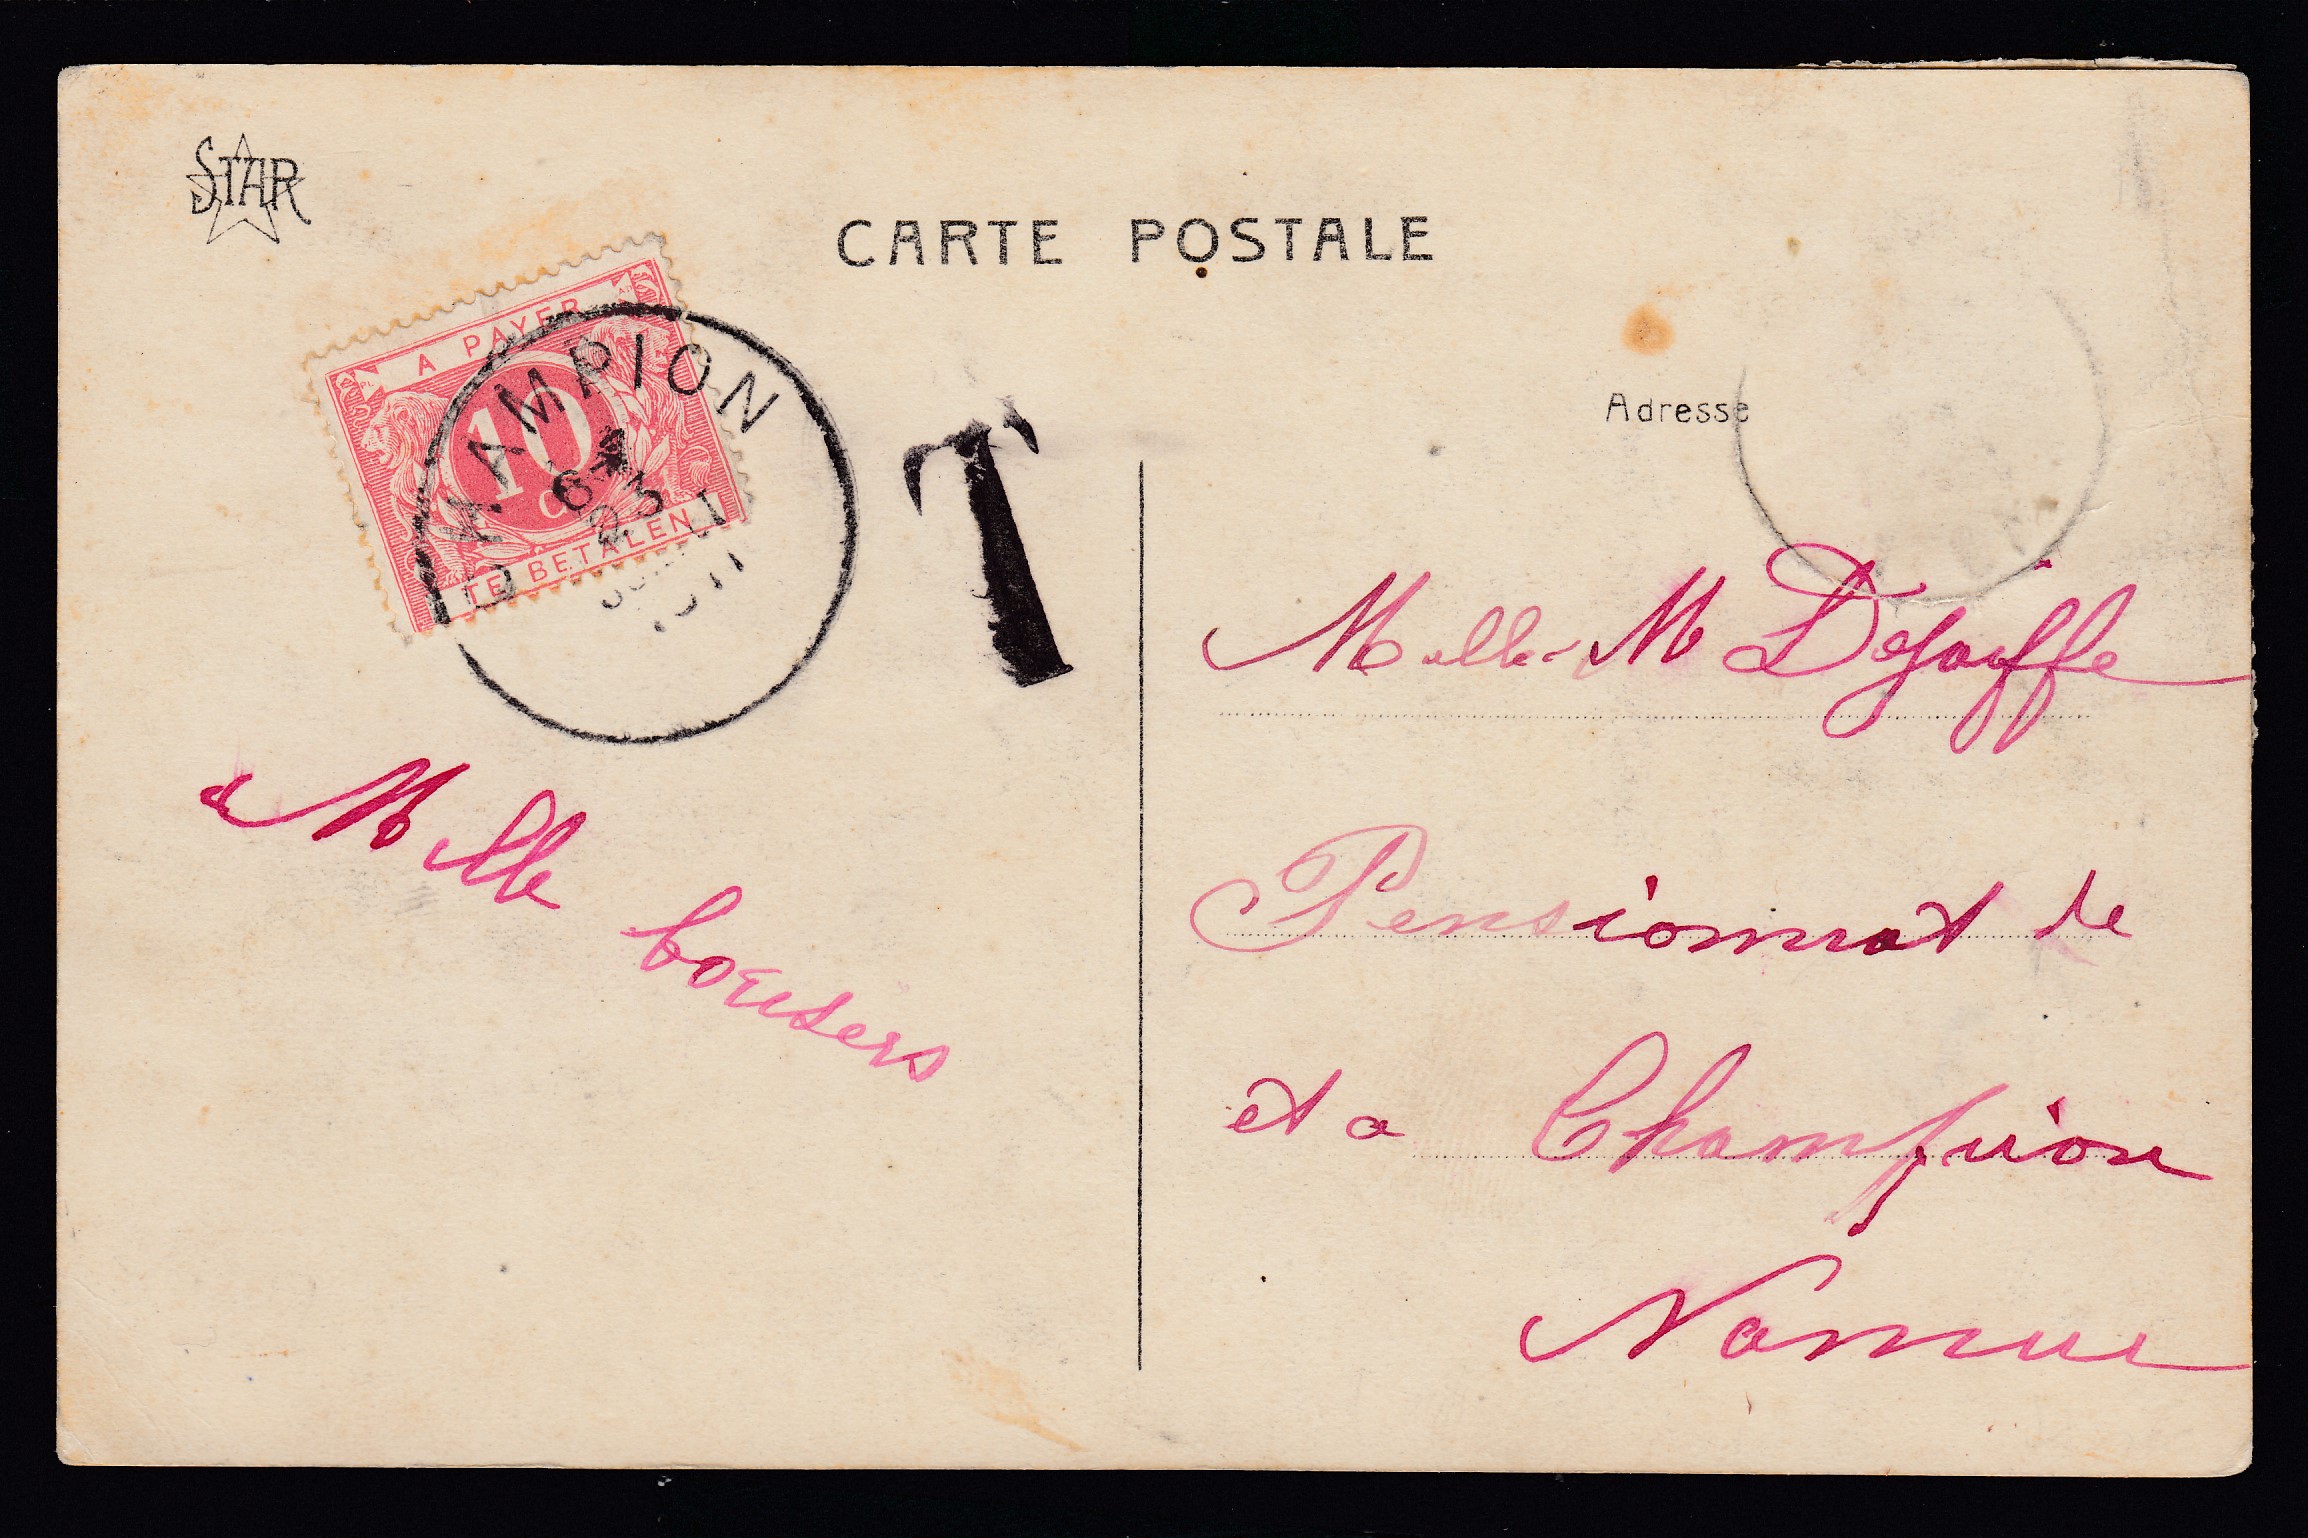 STAR
CARTE POSTALE
A PAYER
10
TE BETALEN
CHAMPION
T
Adresse
Melle M Dejaiffe
Pensionnat de
et a Champion
Namur
Melle